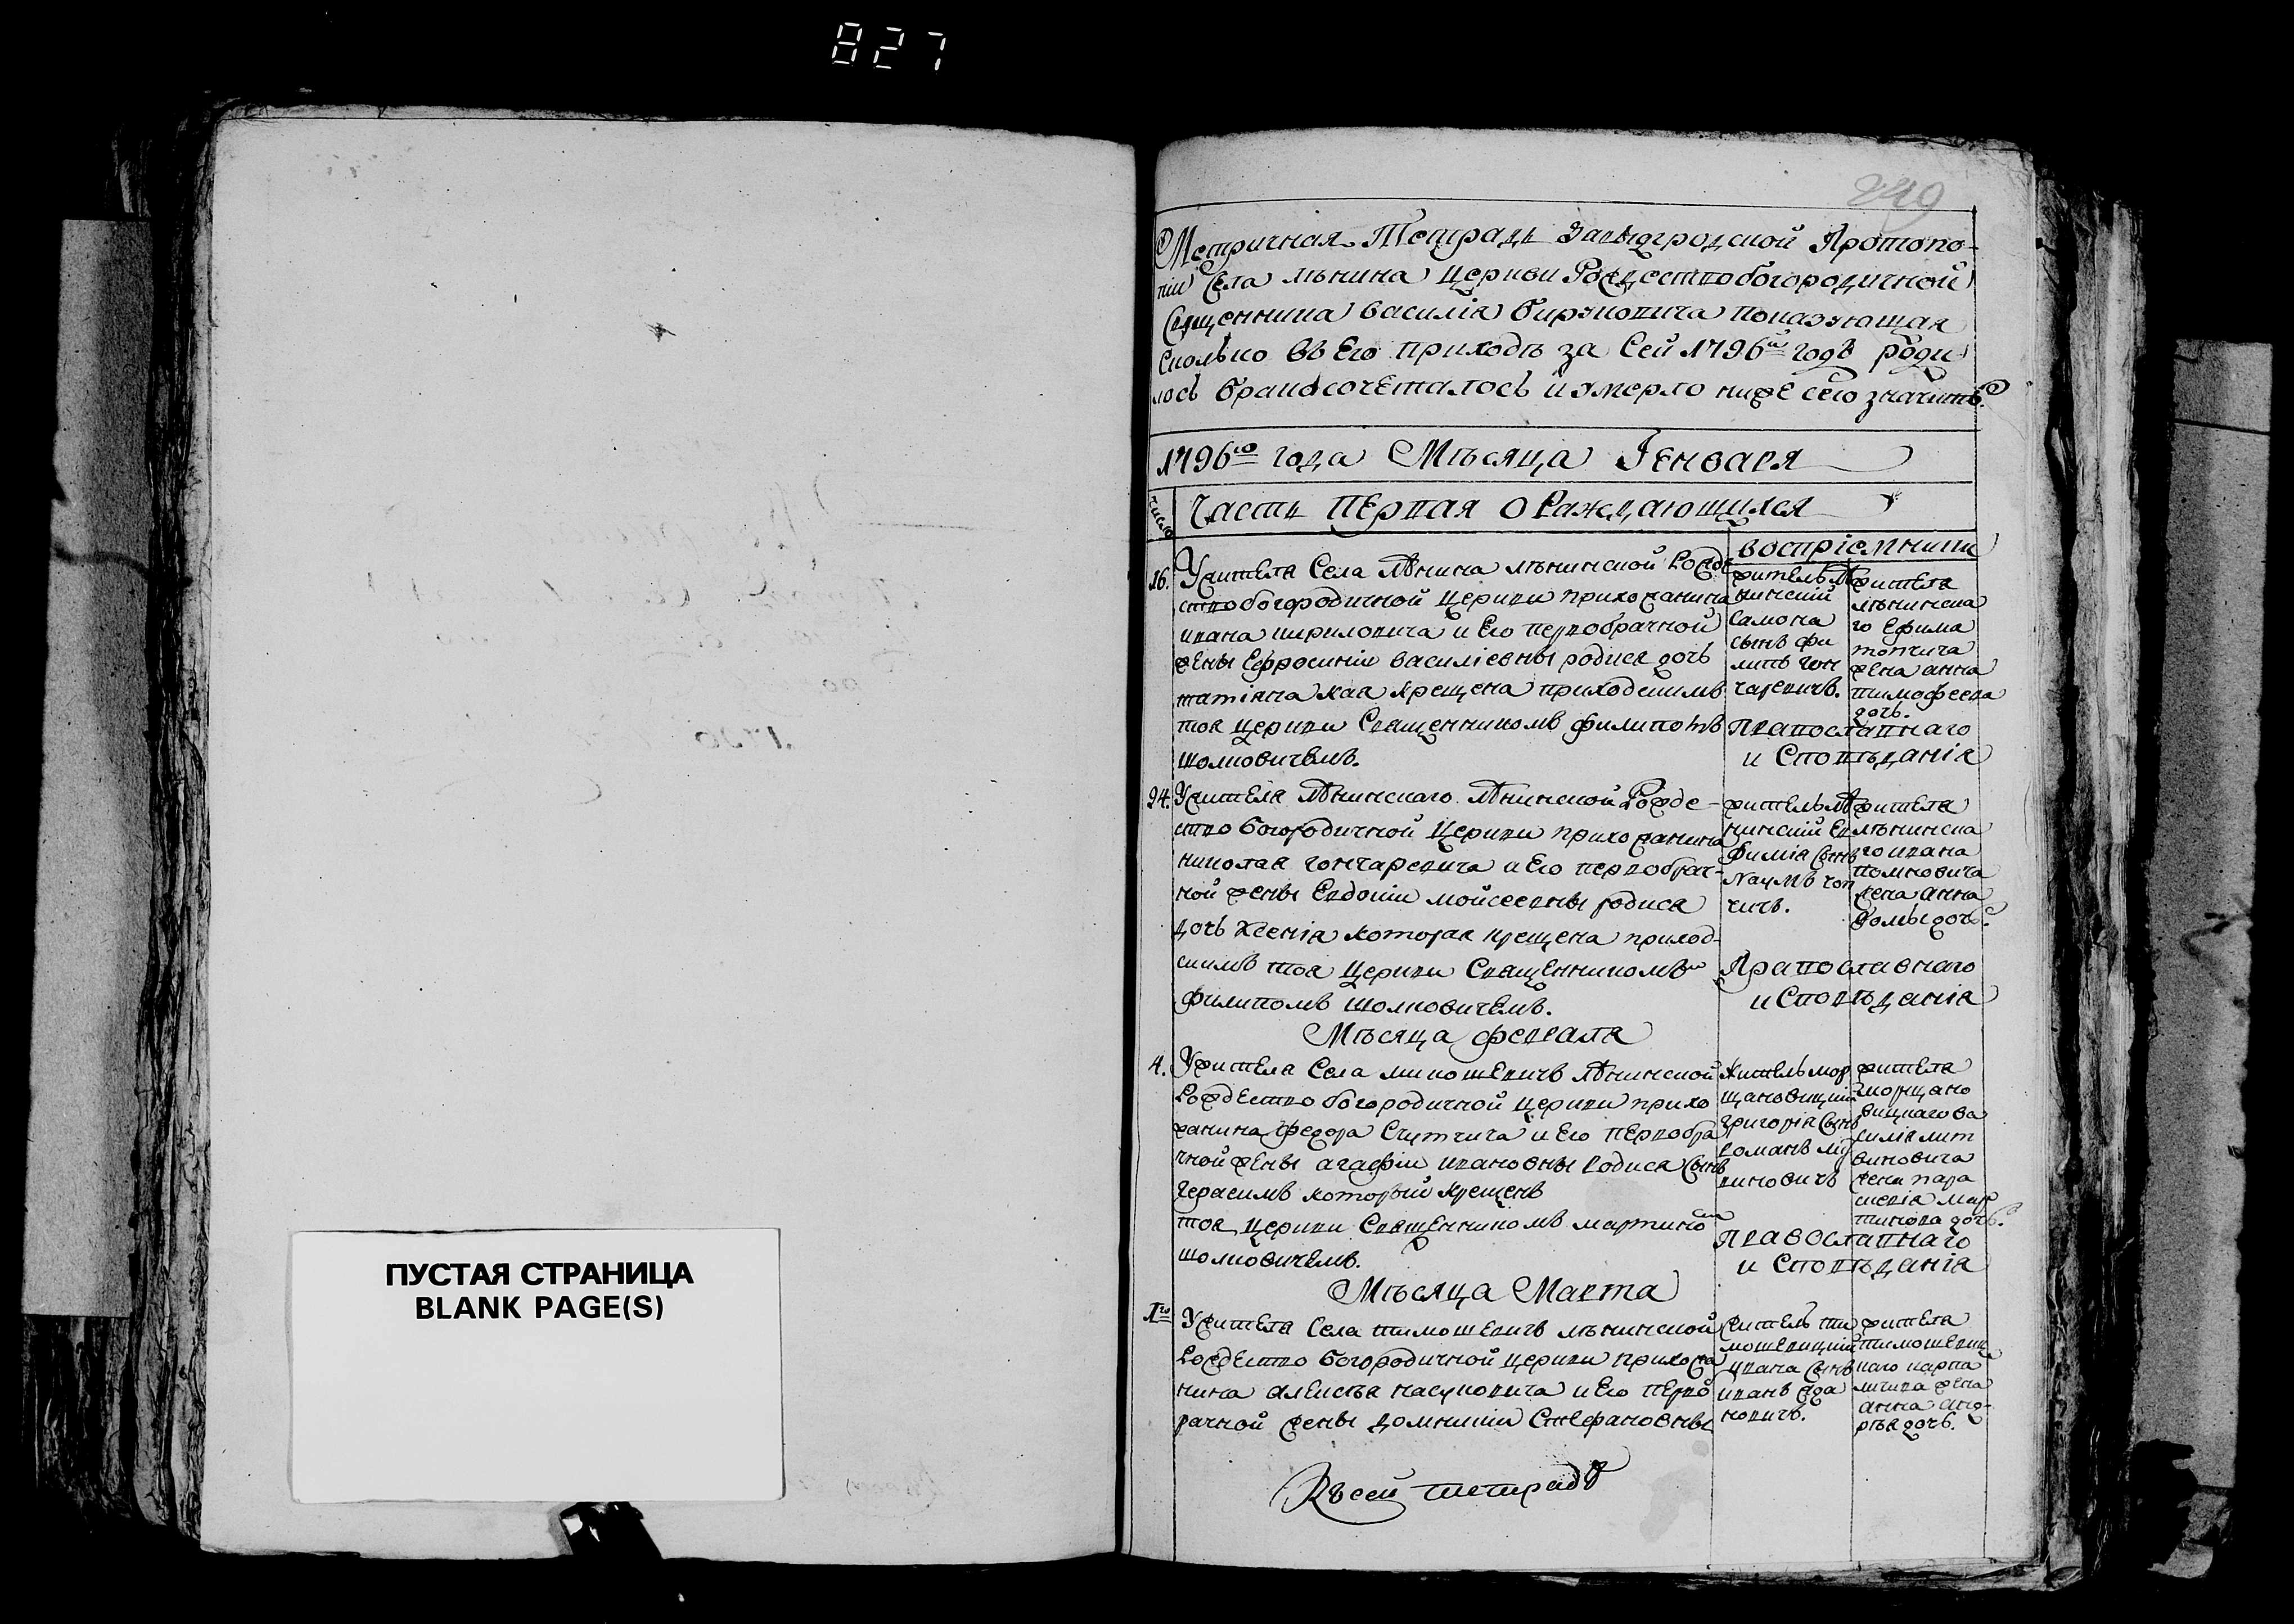 827
249
Метричная Тетрадь Давыдгродской Протопо-
піи Села лѣнина Церкви Рождествобогородичной
Священника василія бируковича показующая
Сколько въ Его приходѣ за Сей 1796й годъ роди
лось бракосочеталось и умерло ниже сего значитъ.
1796го года Мѣсяца Генваря
число
Часть первая о Раждающихся
воспріемники
16. Ужителя Села Лѣнина лѣнинской Рожде
ствобогородичной Церкви прихожанина
ивана кириловича и Его первобрачной
жены Ефросиніи василіевны родися дочь
татіана кая крещена приходскимъ
тоя церкви Священникомъ филипомъ
шолковичемъ.
житель Лѣ
нинскій
Самойла
сынъ фи
липъ гон
чаревичъ.
жителя
лѣнинска
го Ефима
жена анна
тимофеева
дочь.
православнаго
и Сповѣданія
24. Ужителя Лѣнинскаго Лѣнинской Рожде-
ство богородичной Церкви прихожанина
николая гончаревича и Его первобрач-
ной жены Евдокіи мойсеевны родися
дочь Ксенія которая крещена приход-
скимъ тоя Церкви Священникомъ
филипомъ шолковичемъ.
житель Лѣ
нинскій Ев
фимія сынъ
Наумъ
жителя
лѣнинска
го ивана
жена анна
фомы дочь.
Православнаго
и Сповѣданія
Мѣсяца февраля
4. Ужителя Села микошевичъ Лѣнинской
Рождество богородичной церкви прихо
жанина федора и Его первобра
чной жены агафіи ивановны родися сынъ
герасимъ который крещенъ
тоя церкви Священникомъ мартиномъ
шолковичемъ.
Житель мор
щановицкій
григорія сынъ
романъ лит
виновичъ
жителя
морщано
вицкаго ва
силія лит
виновича
жена пара
скевія мар
тинова дочь.
православнаго
и Сповѣданія
Мѣсяца Марта
1го Ужителя Села тимошевичъ лѣнинской
Рождество богородичной церкви прихожа
нина алексѣя и Его перво
рачной жены домникіи Стефановны
житель ти
мошевицкій
ивана сынъ
иванъ жда
новичъ.
жителя
тимошевиц
каго карпа
жена
анна анд-
рѣя дочь.
Къ сей тетрадѣ
ПУСТАЯ СТРАНИЦА
BLANK PAGE(S)